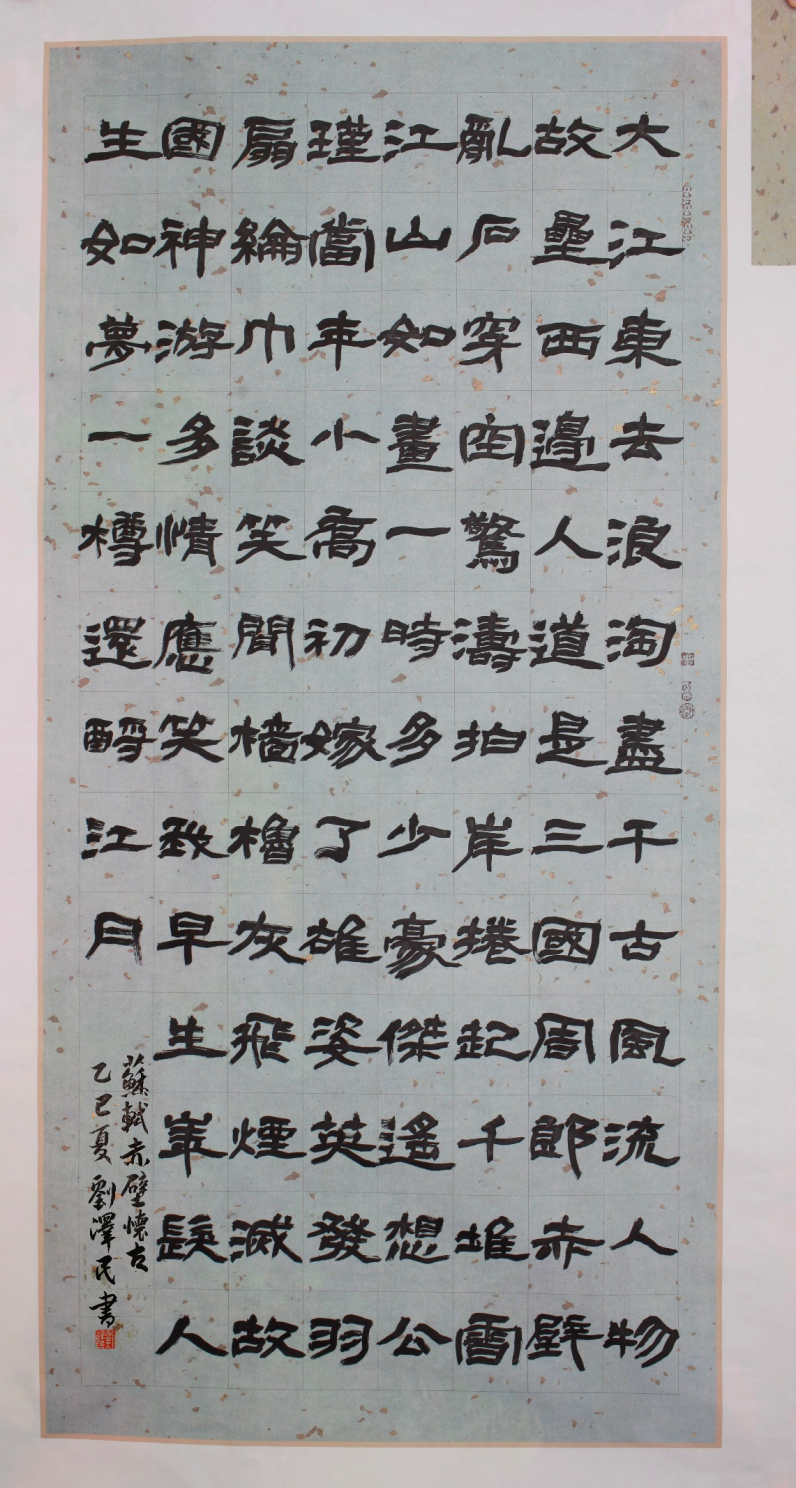 大江東去浪淘盡千古風流人物
故壘西邊人道是三國周郎赤壁
亂石穿空驚濤拍岸捲起千堆雪
江山如畫一時多少豪傑遙想公
瑾當年小喬初嫁了雄姿英發羽
扇綸巾談笑間檣櫓灰飛煙滅故
國神游多情應笑我早生華髮人
生如夢一樽還酹江月
蘇軾赤壁懷古
乙巳夏劉澤民書